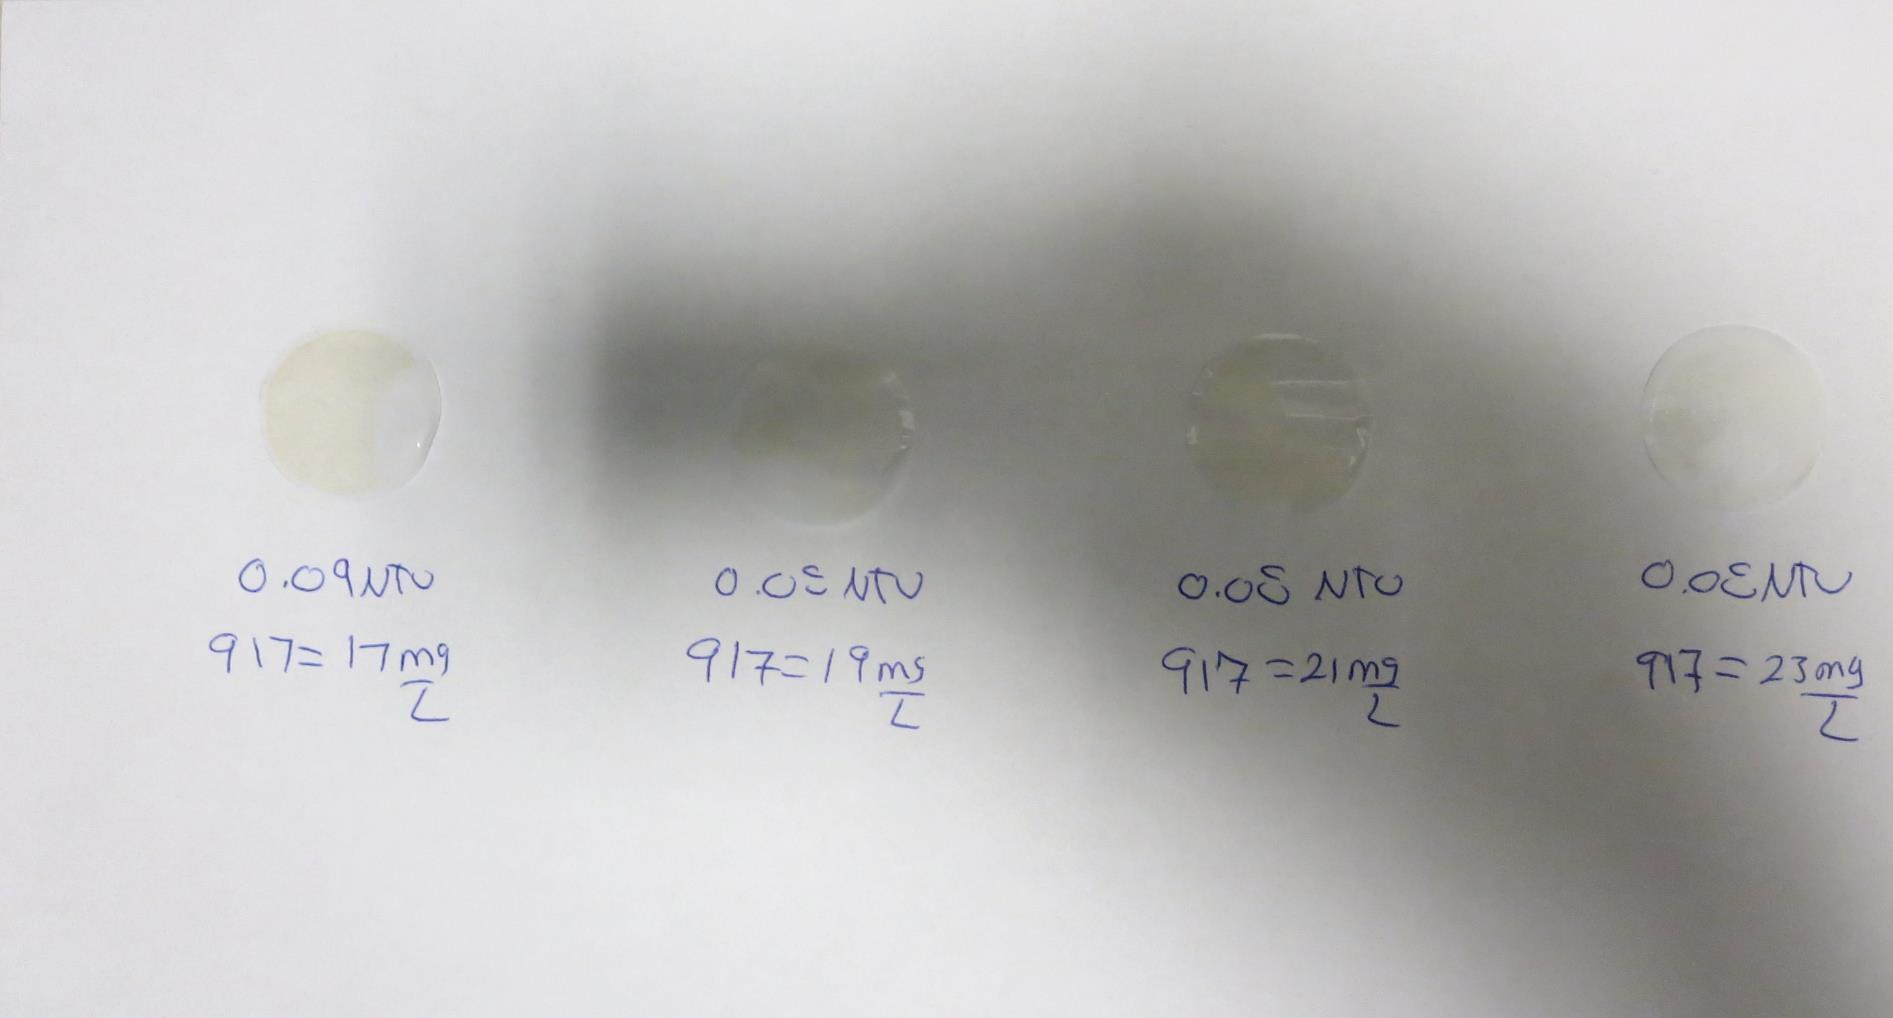 0.09NTU
917=17mg/L
0.08 NTU
917=19mg/L
0.08 NTU
917=21mg/L
0.08NTU
917=23mg/L